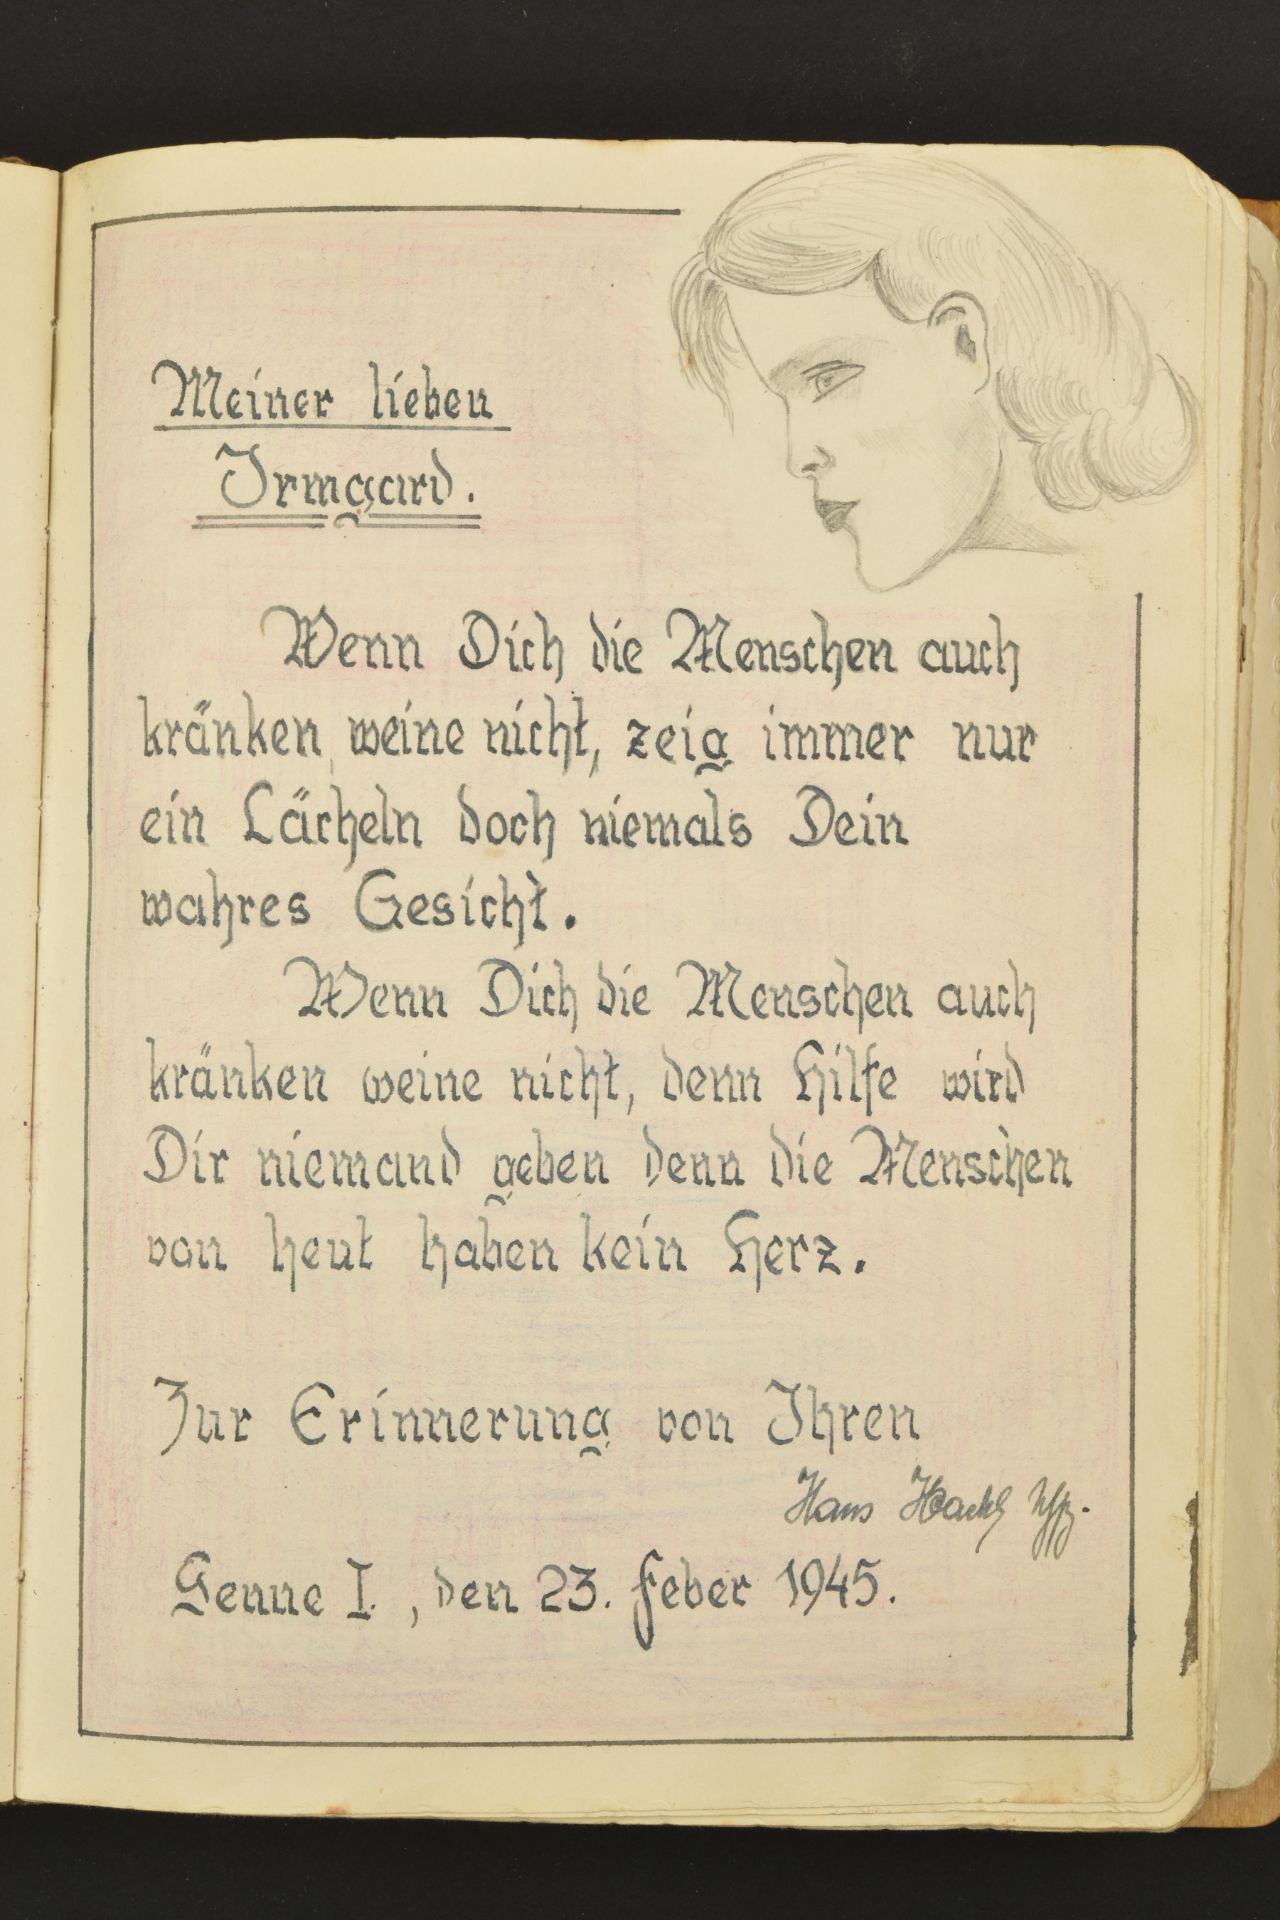 Meiner lieben
Irmgard.
Wenn Dich die Menschen auch
kränken, weine nicht, zeig immer nur
ein Lächeln doch niemals Dein
wahres Gesicht.
Wenn Dich die Menschen auch
kränken weine nicht, denn Hilfe wird
Dir niemand geben denn die Menschen
von heut haben kein Herz.
Zur Erinnerung von Ihren
Hans Hackl
Senne I. , den 23. Feber 1945.